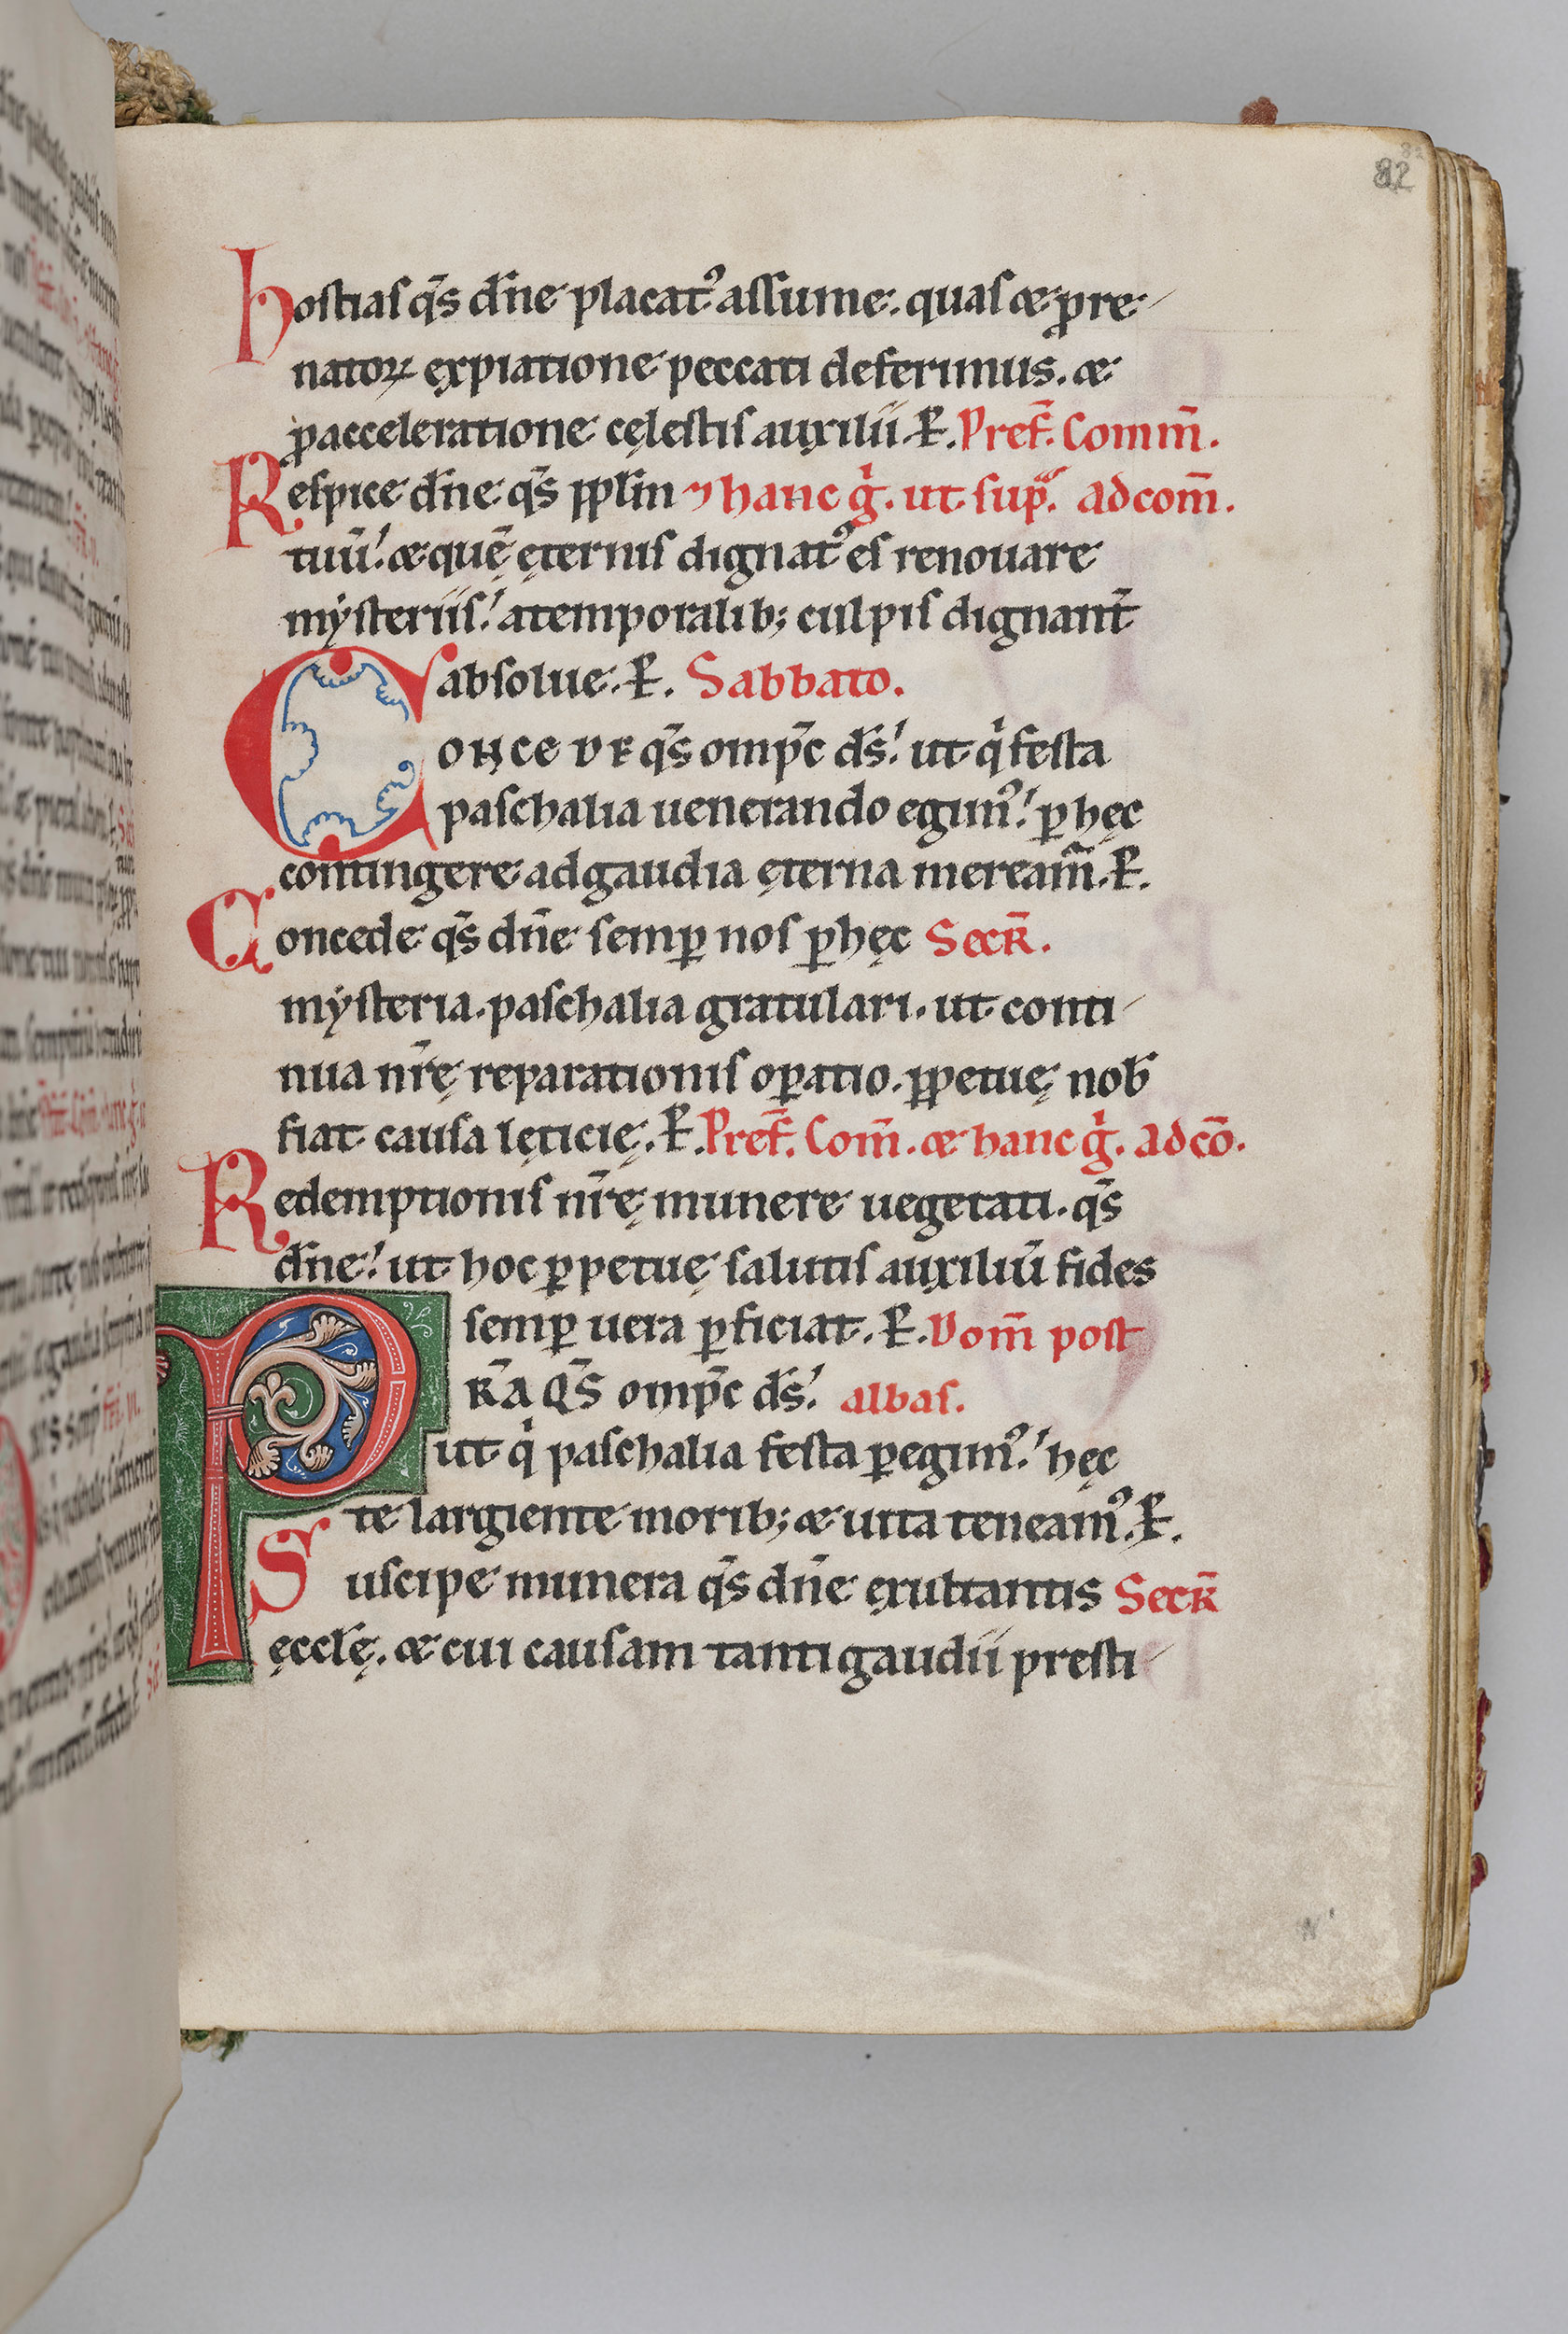 82
hostias q̄s dn̄e placatꝰ assume. quas & ꝓ re-
natoꝝ expiatione peccati deferimus. &
ꝓ acceleratione cęlestis auxilii. P̶. Pref̄. Com̄m.
Respice dn̄e q̄s pp̄lm hanc g̍. ut sup̄ᵃ. ad com̄.
tuū! & quē ęternis dignatꝰ es renouare
mẏsteriis! a temporalib; culpis dignant̄
absolue. P̶. Sabbato.
CONCEDE q̄s omp̄c ds̄! ut q̍ festa
paschalia uenerando egimꝰ! ꝑ hęc
contingere ad gaudia ęterna meream̄. P̶.
Concede q̄s dn̄e semꝑ nos ꝑ hęc Secr̄.
mẏsteria. paschalia gratulari. ut conti-
nua nr̄ę reparationis oꝑatio. ꝑpetuę nob̄
fiat causa lęticię. P̶. Pref̄. Com̄. & hanc g̍. ad cō.
Redemptionis nr̄ę munere uegetati. q̄s
dn̄e! ut hoc ꝑpetuę salutis auxiliū fides
semꝑ uera ꝑficiat. P̶. Dom̄ post
PR̄A Q̄S omp̄c ds̄! albas.
ut q̍ paschalia festa ꝑegimꝰ! hęc
te largiente morib; & uita teneamꝰ. P̶.
Suscipe munera q̄s dn̄e exultantis Secr̄
ęccl̄ę. & cui causam tanti gaudii presti-